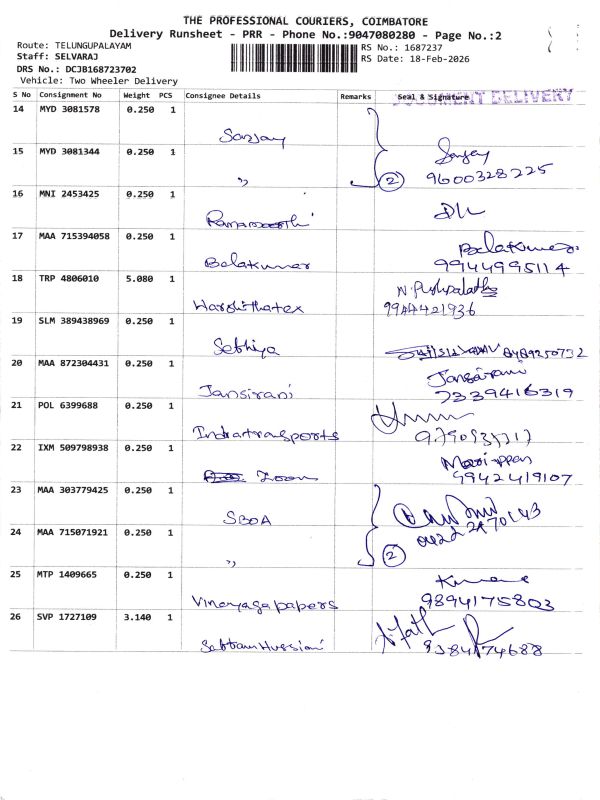 THE PROFESSIONAL COURIERS, COIMBATORE
Delivery Runsheet - PRR - Phone No.:9047080280 - Page No.:2
Route: TELUNGUPALAYAM
RS No.: 1687237
Staff: SELVARAJ
RS Date: 18-Feb-2026
DRS No.: DCJB168723702
Vehicle: Two Wheeler Delivery
DOCUMENT DELIVERY
S No Consignment No Weight PCS Consignee Details Remarks Seal & Signature
14 MYD 3081578 0.250 1
Sanjay
15 MYD 3081344 0.250 1
Sanjay
〃 2 9600328225
16 MNI 2453425 0.250 1
17 MAA 715394058 0.250 1
Balakumar
Balakumar 9944995114
18 TRP 4806010 5.080 1
N. Pushpalatha
Harshithatex 9944421936
19 SLM 389438969 0.250 1
Sethiya
20 MAA 872304431 0.250 1
Jansirani
Jansirani 7339416319
21 POL 6399688 0.250 1
Indratransports
22 IXM 509798938 0.250 1
Mariappan
Zoom 9942419107
23 MAA 303779425 0.250 1
SBOA
24 MAA 715071921 0.250 1
〃 2
25 MTP 1409665 0.250 1
Vinayagapapers 9894175803
26 SVP 1727109 3.140 1
SabbamHussiani 9384174688